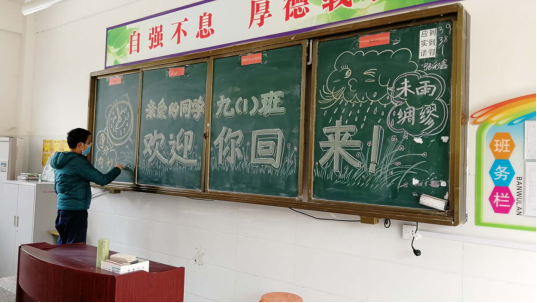 自强不息 厚德载
亲爱的同学 九(1)班
欢迎你回来!
未雨
绸缪
应到
实到
请假
班
务
栏
BANWULAN